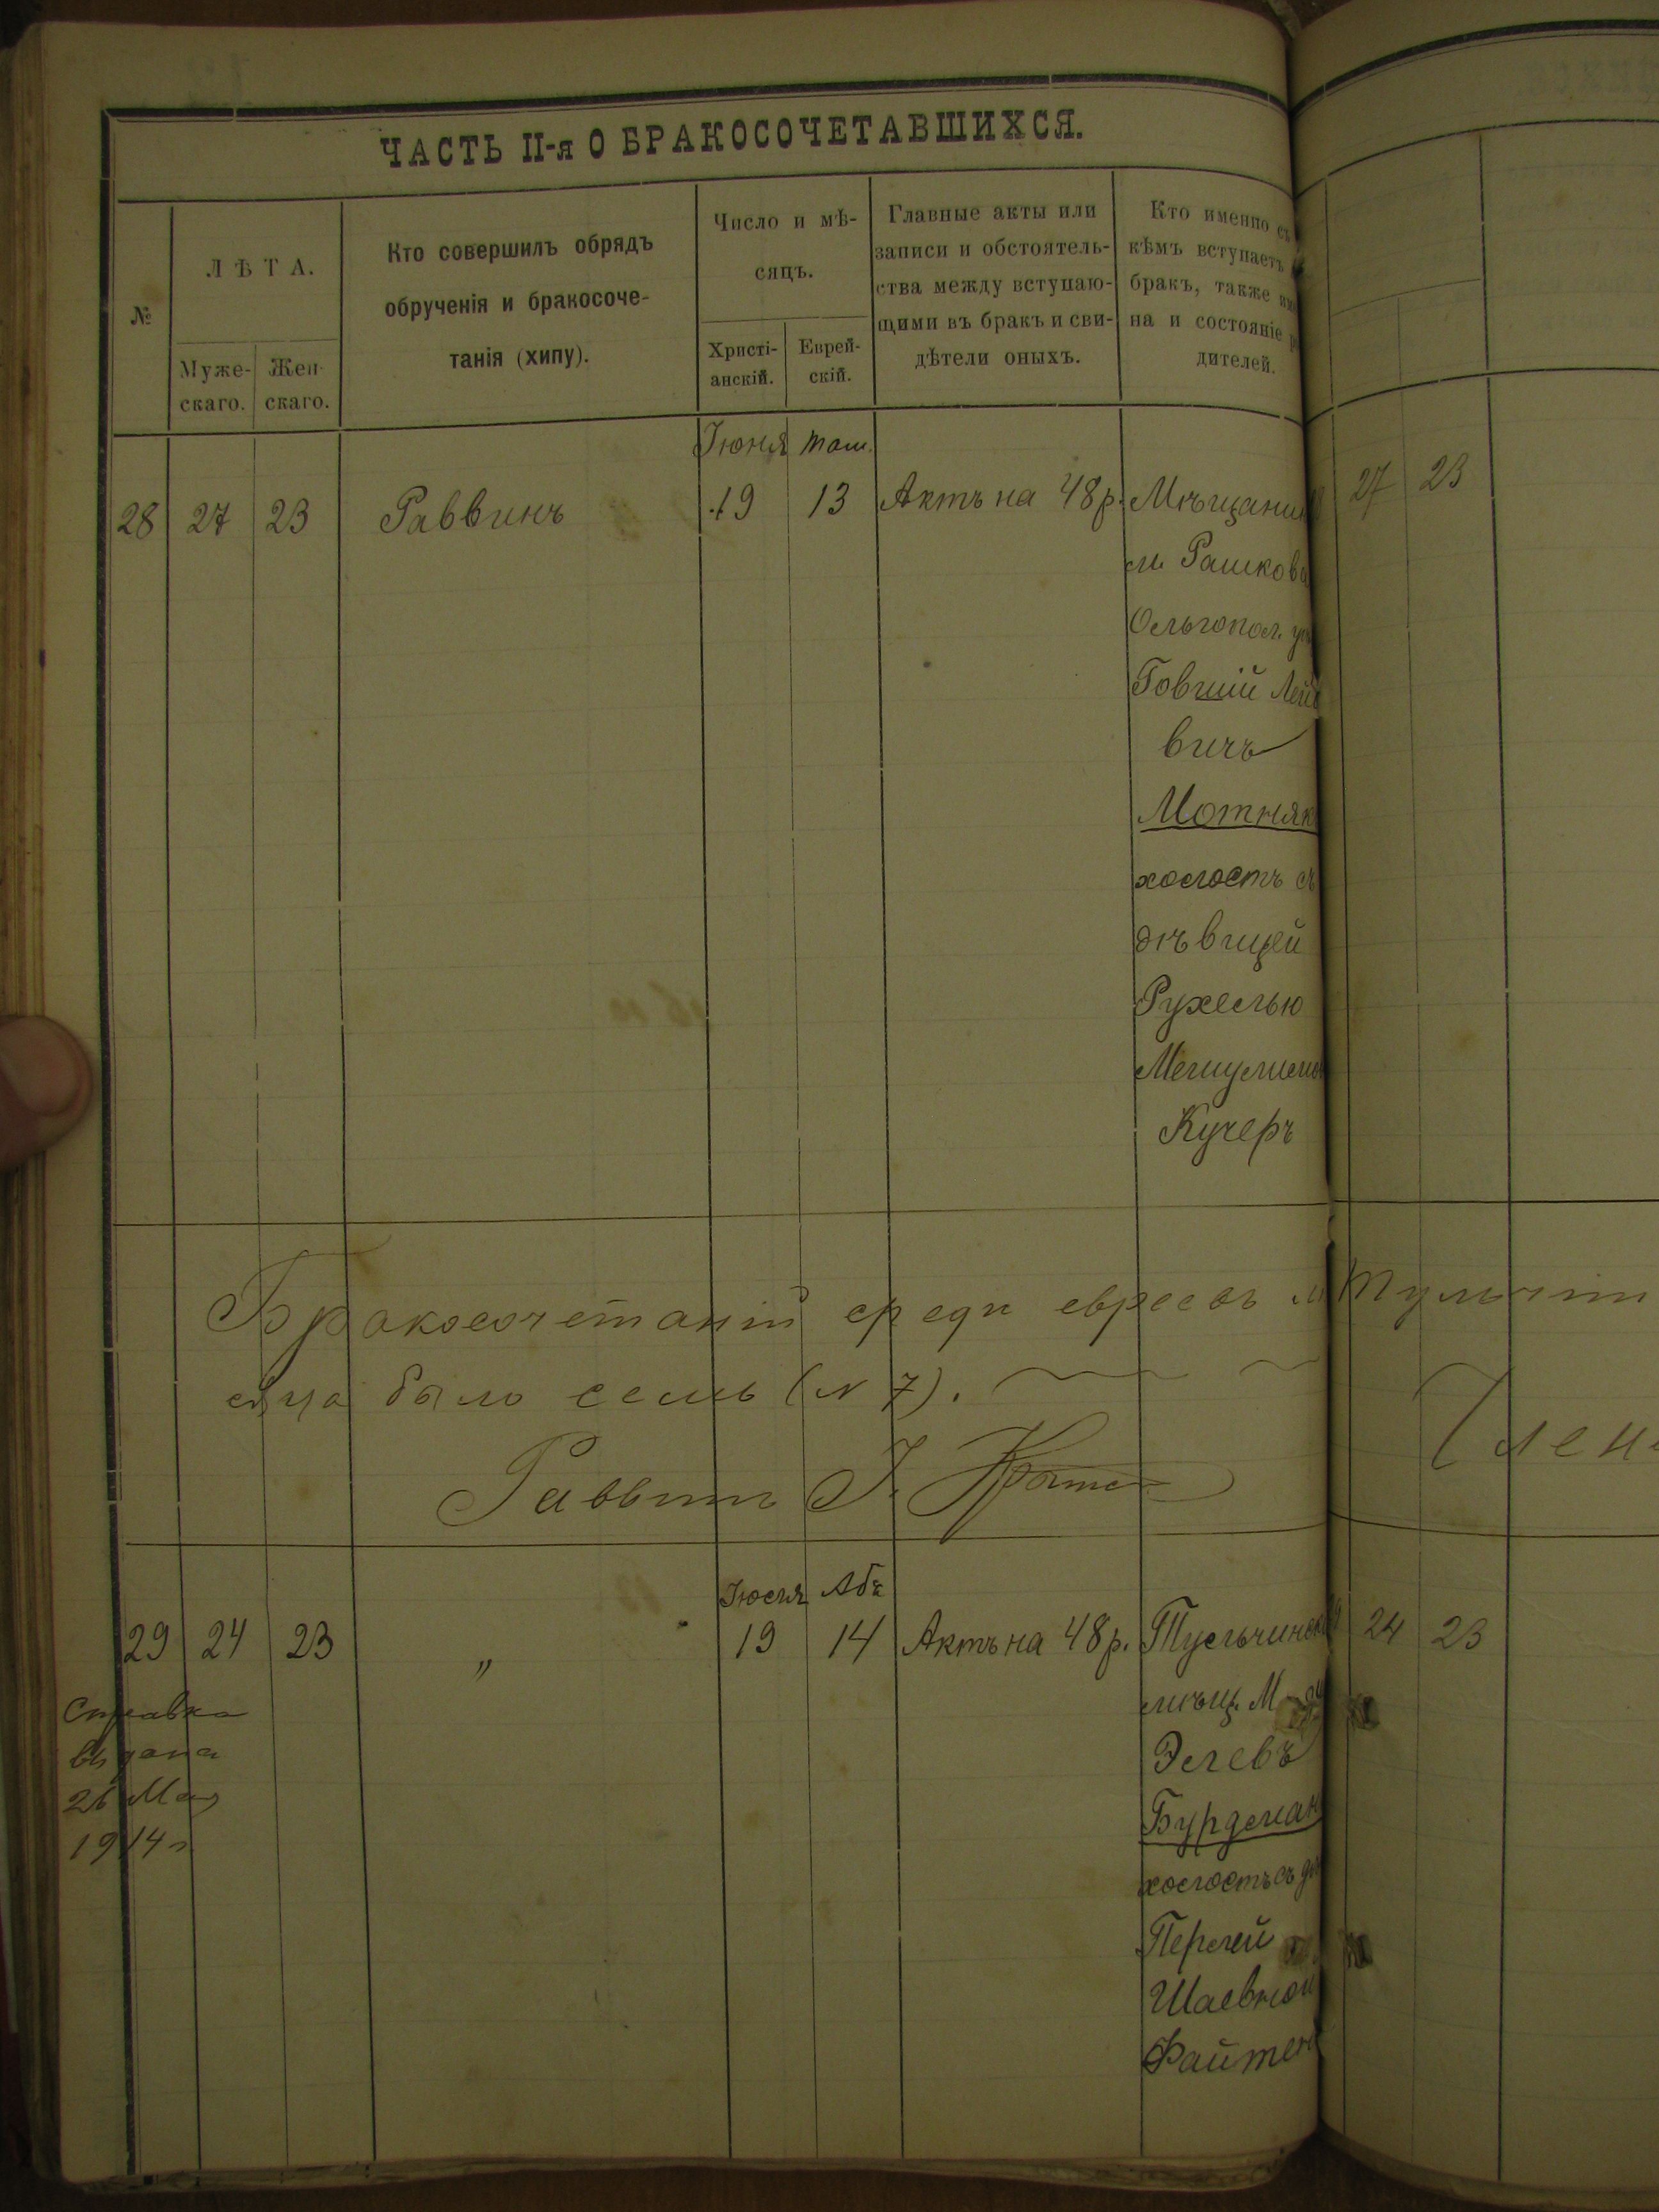 ЧАСТЬ II-я О БРАКОСОЧЕТАВШИХСЯ.
№
ЛѢТА.
Муже-
скаго.
Жен-
скаго.
Кто совершилъ обрядъ
обрученія и бракосоче-
танія (хипу).
Число и мѣ-
сяцъ.
Христі-
анскій.
Еврей-
скій.
Главные акты или
записи и обстоятель-
ства между вступаю-
щими въ бракъ и сви-
дѣтели оныхъ.
Кто именно съ
кѣмъ вступаетъ
бракъ, также
на и состояніе
дителей.
Іюня Там.
28 27 23 Раввинъ 19 13 Актъ на 48 р. Мѣщанин
м. Рашкова
Ольгопол. у
Говшій Лей
вичъ
Мотняк
холостъ съ
дѣвицей
Рухелью
Мешулимо
Кучеръ
27 23
Бракосочетаній среди евреевъ м Тульчин
было семь (№ 7).
Раввинъ
Член
Іюля Абъ
29 24 23 " 19 14 Актъ на 48 р. Тульчинск
мѣщ.
Элевъ
Бурдман
холостъ съ дѣ
Перлей
Шаевной
Файтел
24 23
Справка
выдана
26 Мая
1914 г